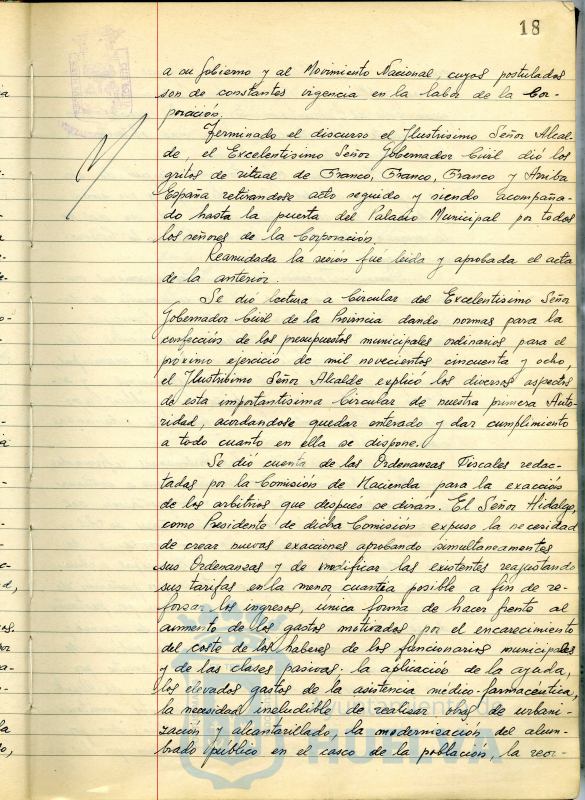 18
a su Gobierno y al Movimiento Nacional, cuyos postulados
son de constantes vigencia en la labor de la Cor-
poración.
Terminado el discurso el Ilustrisimo Señor Alcal-
de, el Excelentisimo Señor Gobernador Civil dió los
gritos de ritual de Franco, Franco, Franco y Arriba
España retirandose acto seguido y siendo acompaña-
do hasta la puerta del Palacio Municipal por todos
los señores de la Corporación.
Reanudada la sesión fué leida y aprobada el acta
de la anterior.
Se dió lectura a Circular del Excelentisimo Señor
Gobernador Civil de la Provincia dando normas para la
confección de los presupuestos municipales ordinarios para el
próximo ejercicio de mil novecientos cincuenta y ocho,
el Ilustrisimo Señor Alcalde explicó los diversos aspectos
de esta importantisima Circular de nuestra primera Auto-
ridad, acordandose quedar enterado y dar cumplimiento
a todo cuanto en ella se dispone.
Se dió cuenta de las Ordenanzas Fiscales redac-
tadas por la Comisión de Hacienda para la exacción
de los arbitrios que después se diran. El Señor Hidalgo,
como Presidente de dicha Comisión expuso la necesidad
de crear nuevas exacciones aprobando simultaneamentes
sus Ordenanzas y de modificar las existentes reajustando
sus tarifas en la menor cuantia posible a fin de re-
forzar los ingresos, unica forma de hacer frente al
aumento de los gastos motivados por el encarecimiento
del coste de los haberes de los funcionarios municipales
y de las clases pasivas. la aplicación de la ayuda,
los elevados gastos de la asistencia médico-farmaceutica,
la necesidad ineludible de realizar obras de urbani-
zación y alcantarillado, la modernización del alum-
brado público en el casco de la población, la reor-
Ayuntamiento de
HUELVA